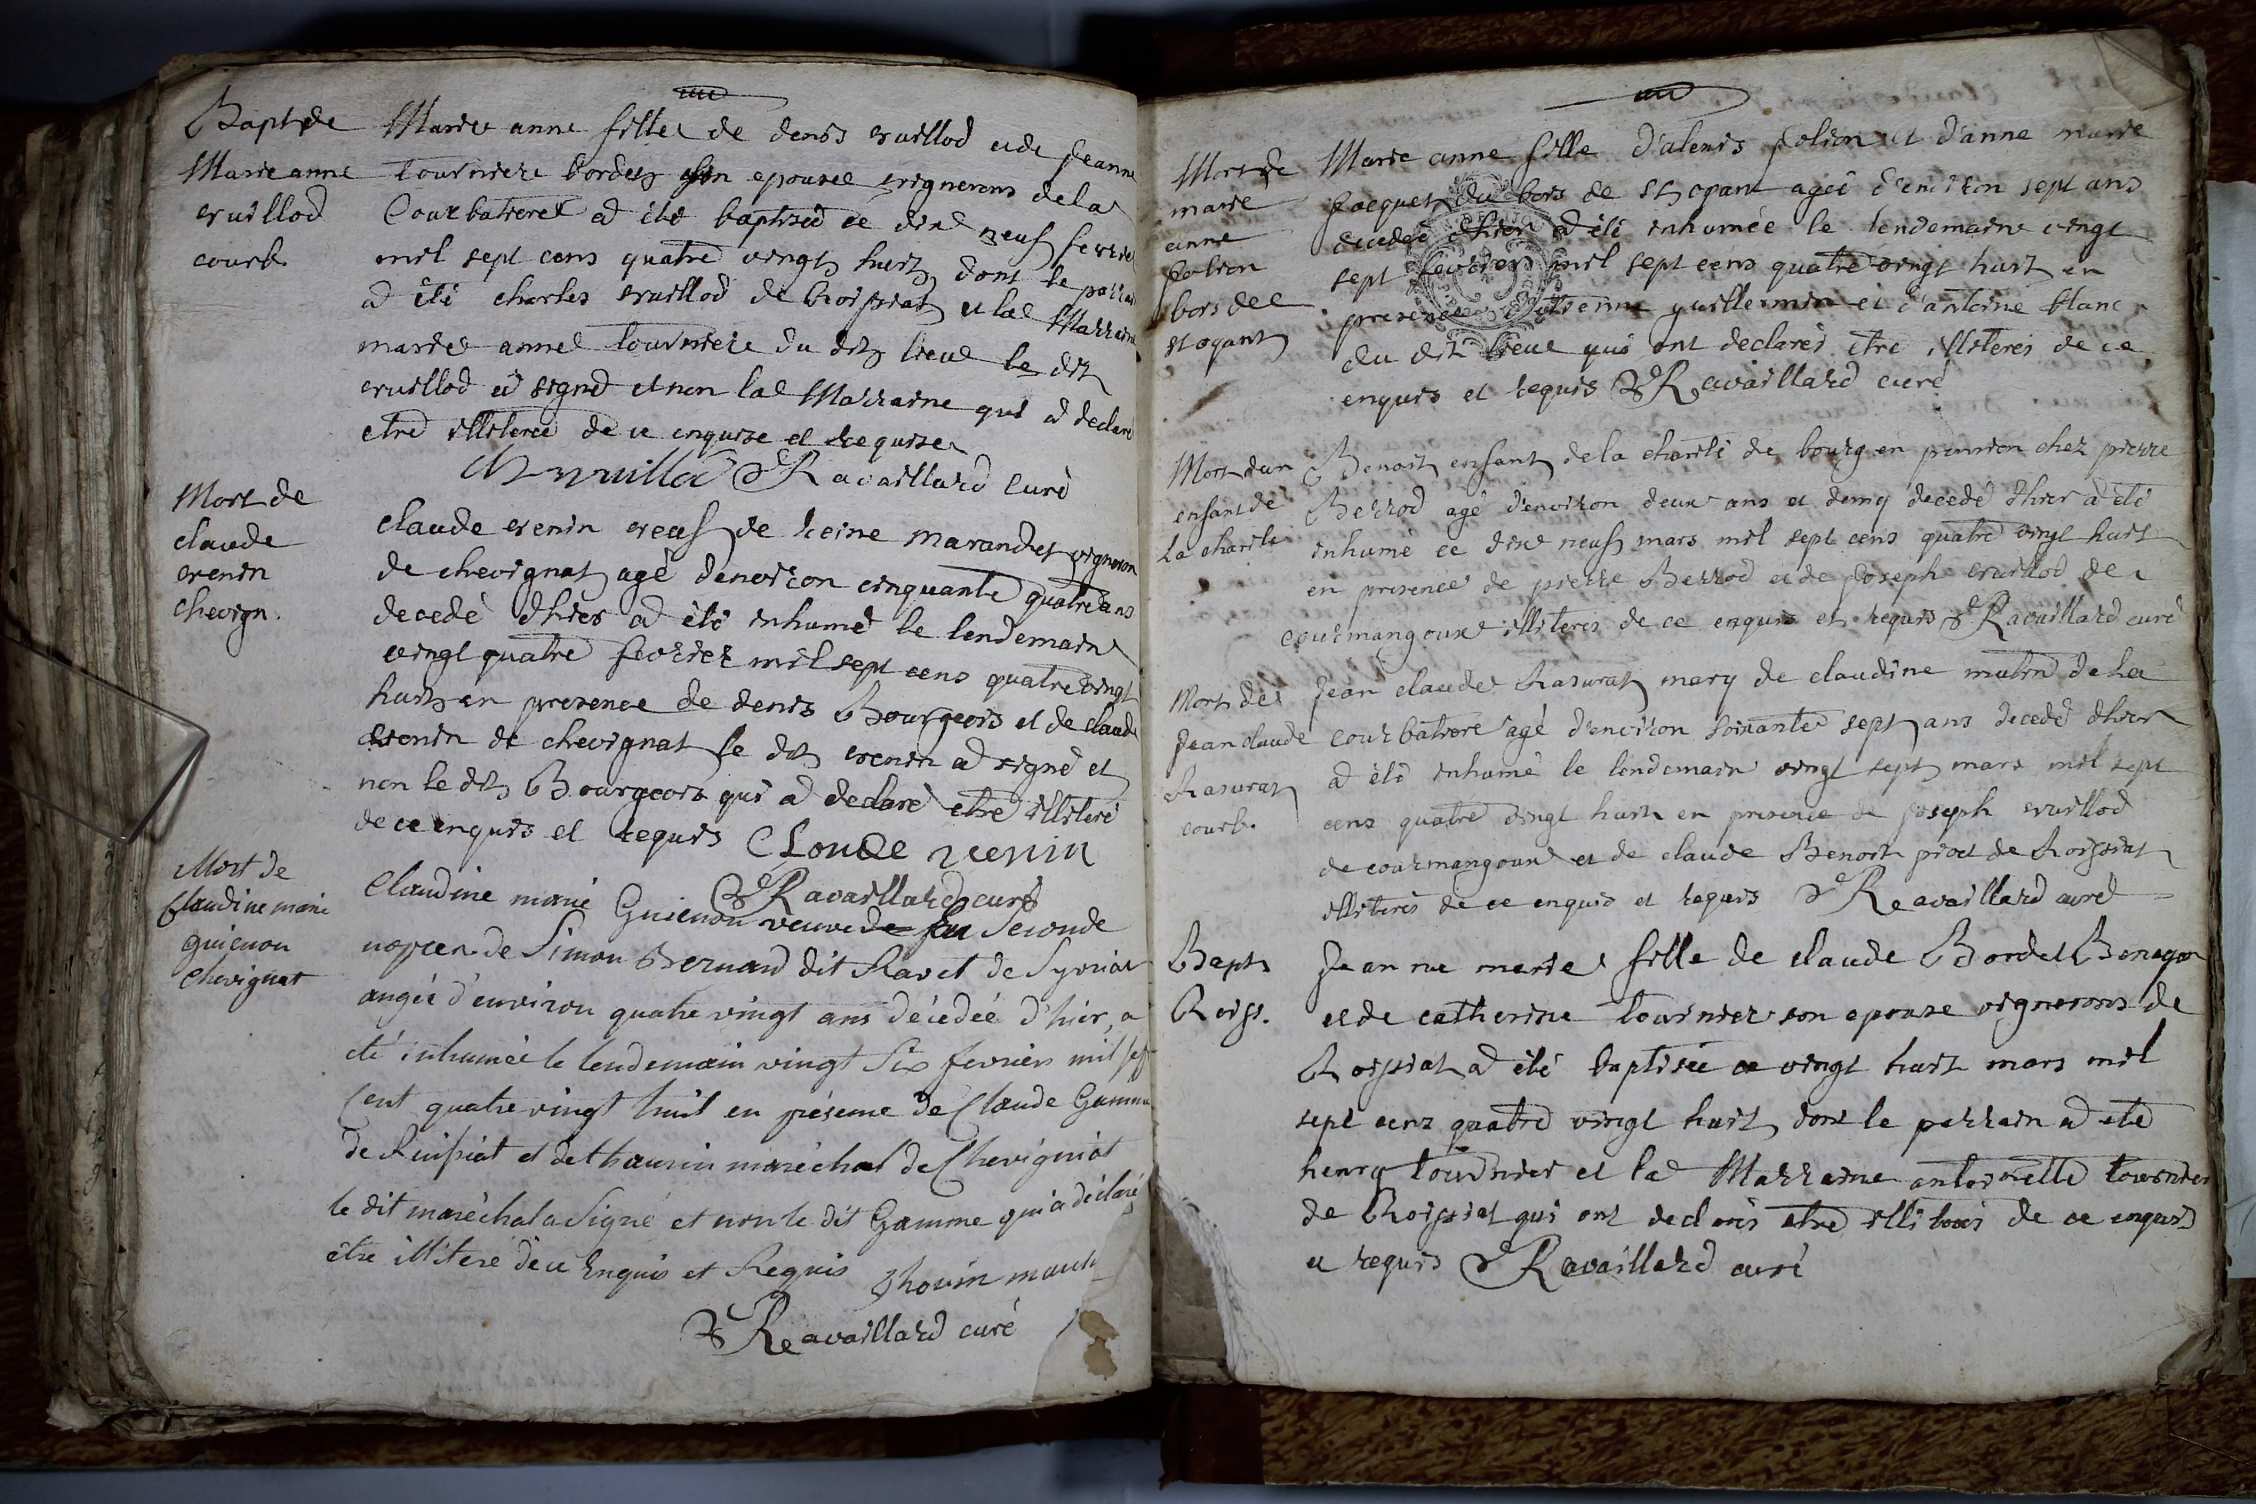 Bapt de
Marie anne
vuillod
courb.
Marie anne fille de denis vuillod et de Jeanne
tourniere bordet son epouse vignerons de la
Courbatiere a été baptisée ce dixe neuf fevrier
mil sept cens quatre vingt huit dont le parrain
a été charles vuillod de Roissiat et la Marraine
marie anne tourniere du dit lieue le dit
vuillod a signé et non la Marraine qui a declaré
etre illiterée de ce enquise et requise
Ravaillard curé
Mort de
claude
venin
chevign.
claude venin veuf de reine marandet vigneron
de chevignat agé denviron cinquante quatre ans
decedé d'hier a été inhumé le lendemain
vingt quatre fevrier mil sept cens quatre vingt
huit en presence de denis Bourgeois et de claude
venin de chevignat le dit venin a signé et
non le dit Bourgeois qui a declaré etre illiteré
de ce enquis et requis CLoude venin
Ravaillard curé
Mort de
Claudine marie
guienon
Chevignat
Claudine marie Guienon veuve de en Seconde
nopces de Simon Bernard dit Ravet de
angée d'environ quatre vingt ans décedée d'hier, a
été inhumée le lendemain vingt Six fevrier mil sept
cent quatre vingt huit en présence de Claude Gamme
de Roissiat et de thaurin maréchal de Chevigniat
le dit maréchal a Signé et non le dit Gamme qui a déclaré
être illiteré de ce Enquis et Requis
Ravaillard curé
Mort de
marie
anne
folion
bois de
st oyant
Marie anne fille d'alexis folion et d'anne marie
Jacquet du bois de st oyant agée d'environ sept ans
decedée d'hier a été inhumée le lendemain vingt
sept fevrier mil sept cens quatre vingt huit en
presence d'etienne guillermin et d'antoine blanc
du dit lieue qui ont declarés etre illiterés de ce
enquis et requis Ravaillard curé
Mort d'un
enfant de
la charité
Benoit enfant de la charité de bourg en pension chez pierre
Berrod agé d'environ deux ans et demy decedé d'hier a été
inhumé ce dixe neuf mars mil sept cens quatre vingt huit
en presence de pierre Berrod et de Joseph vuillod de
courmangoux illiterés de ce enquis et requis Ravaillard curé
Mort de
Jean claude
Rasurat
courb.
Jean claude Rasurat mary de claudine mutin de la
courbatiere agé d'environ soixante sept ans decedé d'hier
a été inhumé le lendemain vingt sept mars mil sept
cens quatre vingt huit en presence de joseph vuillod
de courmangoux et de claude Benoit de Roissiat
illiterés de ce enquis et requis Ravaillard curé
Bapt
Roiss.
Jeanne marie fille de claude Bordet
et de catherine tournier son epouse vignerons de
Roissiat a été baptisée ce vingt huit mars mil
sept cens quatre vingt huit dont le parrain a eté
henry tournier et la Marraine antoinette tournier
de Roissiat qui ont declarés etre illiterés de ce enquis
et requis Ravaillard curé